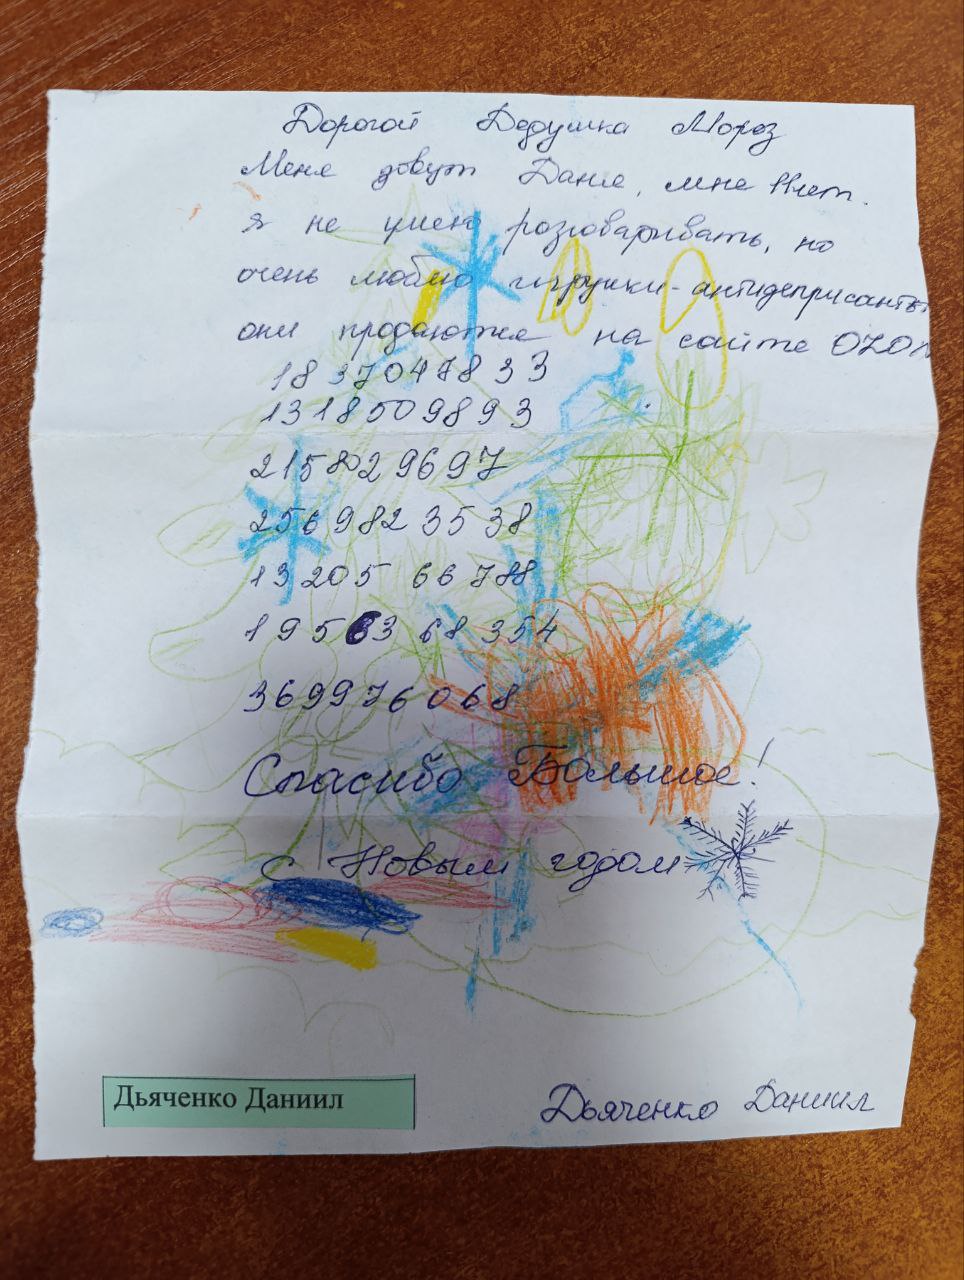 Дорогой Дедушка Мороз
Меня зовут Даня, мне 11лет.
я не умею разговаривать, но
очень люблю игрушки-антидеприсанты
они продаются на сайте OZON
1837047833
1318509893
215829697
256982 3538
13205 66788
19563 68354
369976068
Спасибо Большое!
с Новым годом
Дьяченко Даниил
Дьяченко Даниил